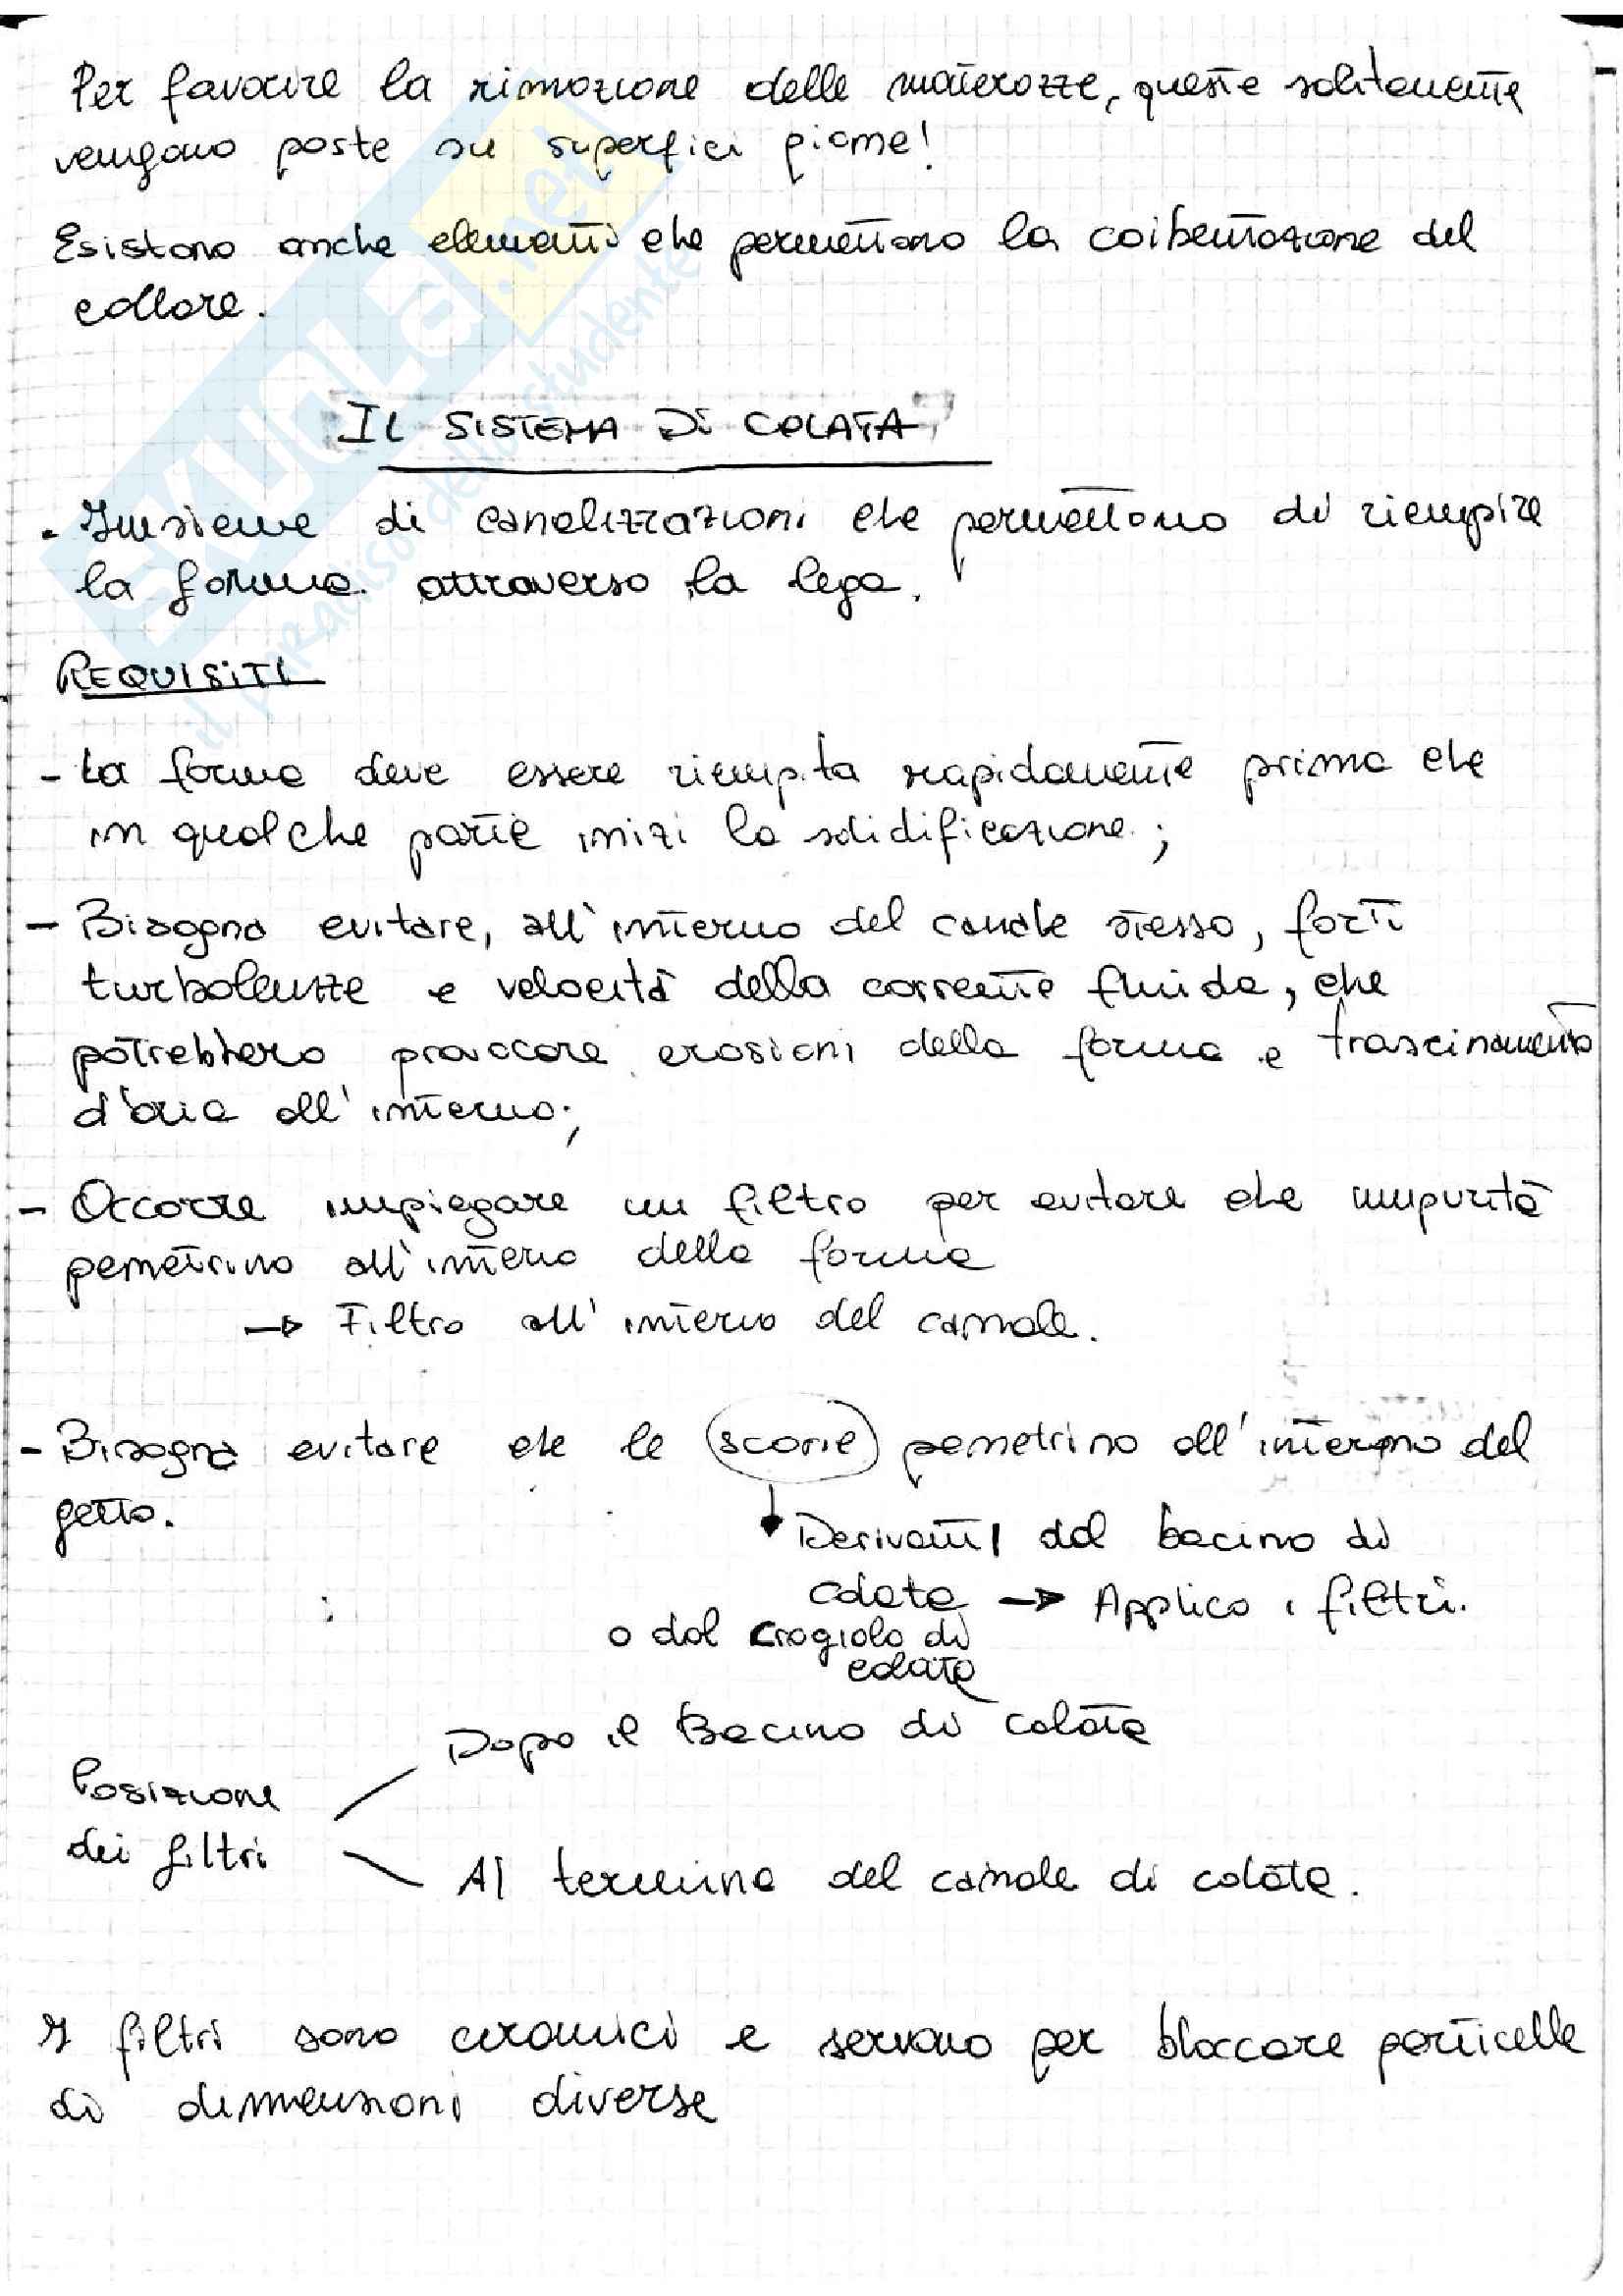 Per favorire la rimozione delle materozze, queste solitamente
vengono poste su superfici piane!
Esistono anche elementi che permettono la coibentazione del
collare.
IL SISTEMA DI COLATA
. Insieme di canalizzazioni che permettono di riempire
la forma attraverso la lega.
REQUISITI
- La forma deve essere riempita rapidamente prima che
in qualche parte inizi la solidificazione;
- Bisogna evitare, all'interno del canale stesso, forti
turbolenze e velocità della corrente fluida, che
potrebbero provocare erosioni della forma e trascinamento
d'aria all'interno;
- Occorre impiegare un filtro per evitare che impurità
penetrino all'interno della forma
→ Filtro all'interno del canale.
- Bisogna evitare che le scorie penetrino all'interno del
getto.
Derivanti dal bacino di
colata → Applico i filtri.
o dal crogiolo di
colata
Dopo il Bacino di colata
Posizione
dei filtri
Al termine del canale di colata.
I filtri sono ceramici e servono per bloccare particelle
di dimensioni diverse
SKUOLA.net
il paradiso dello studente